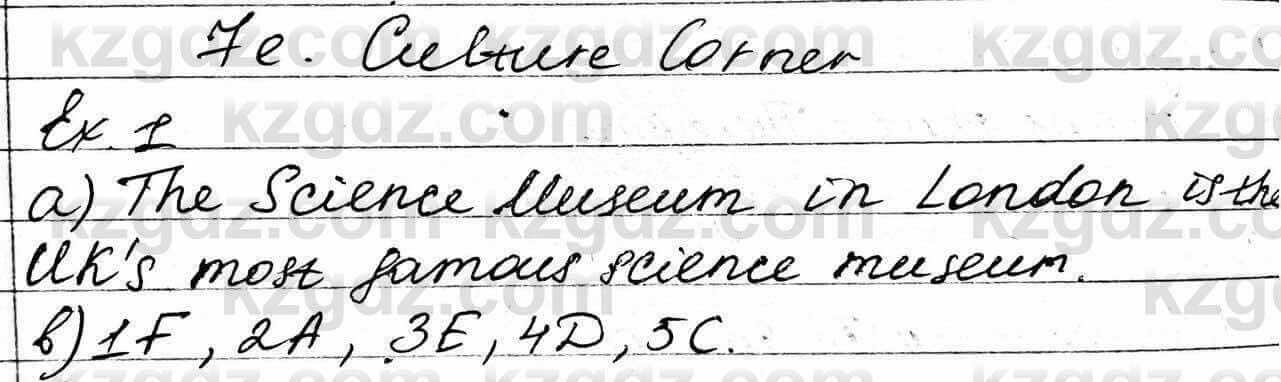 7e. Culture Corner
Ex. 1
a) The Science Museum in London is the
UK's most famous science museum.
b) 1F, 2A, 3E, 4D, 5C.
kzgdz.com